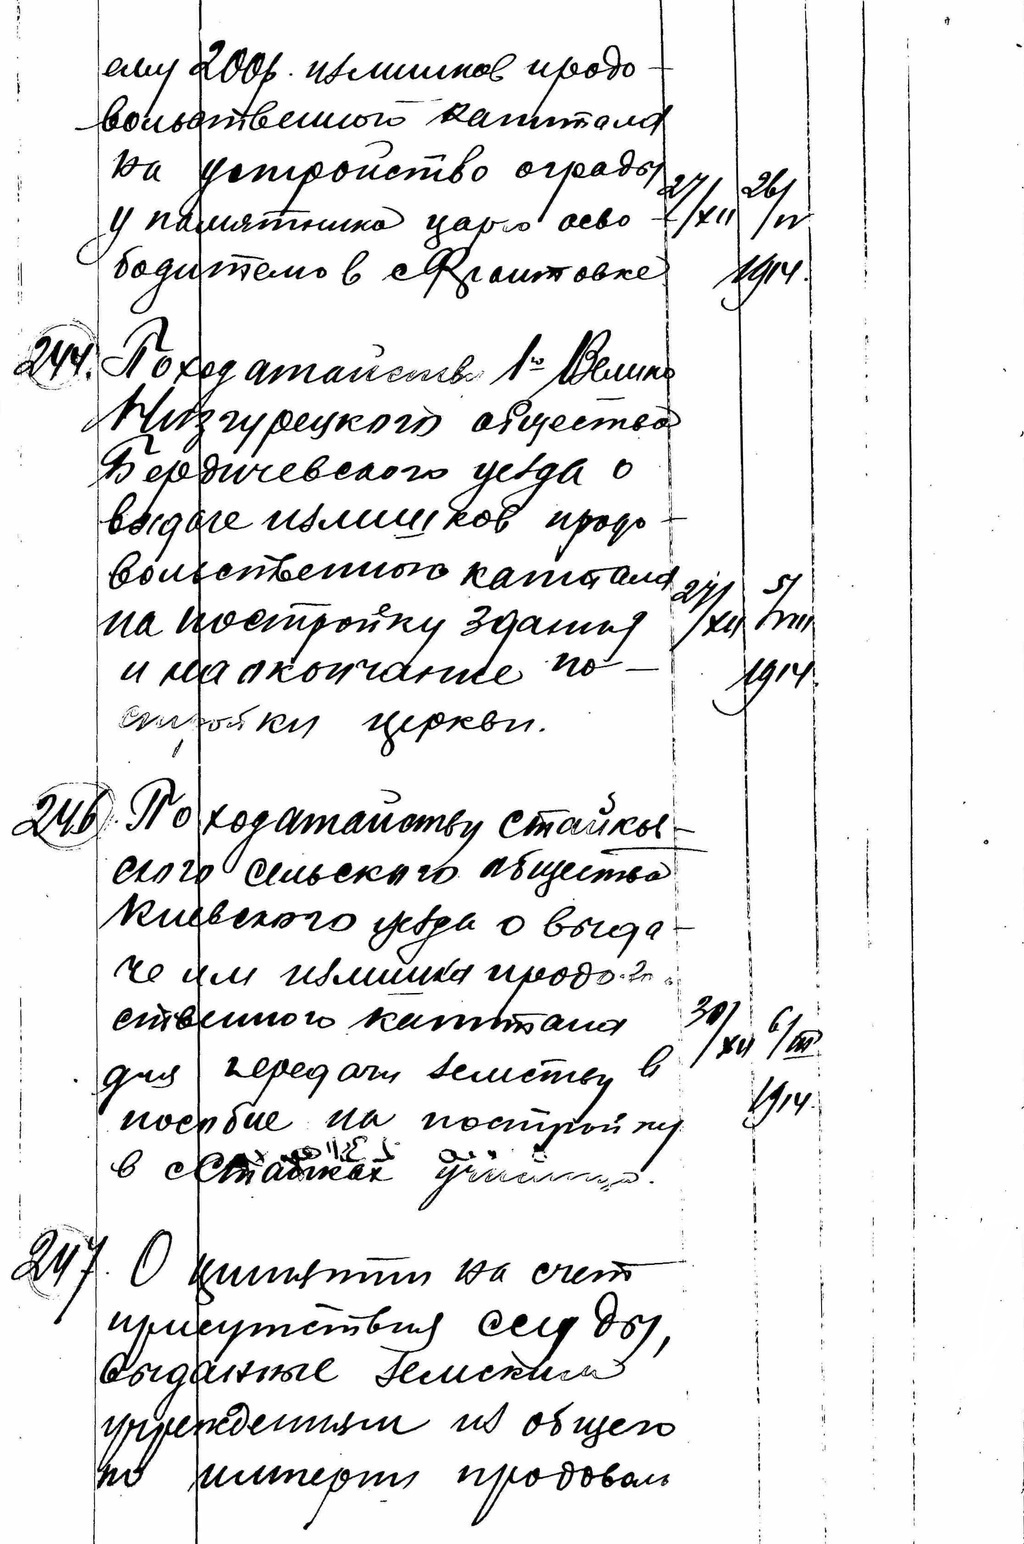 ему 200р. излишков продо-
вольственного капитала
на устройство ограды
у памятника царю осво-
бодителю в с
27/XII 26/IV
1914.
244. По ходатайств 1го Велико
Низгурецкого общества
Бердичевского уезда о
выдаче излишков продо-
вольственного капитала
на постройку здания
и на окончание по-
стройки церкви.
27/XII 5/VIII
1914.
246. По ходатайству Стайков-
ского сельского общества
Киевского уезда о выда-
че им излишка продо
ственного капитала
для передачи земству в
пособие на постройку
в с Стайках училища.
30/XII 6/III
1914.
247. О принятии на счет
присутствия ссуды,
выданные земским
учреждениям из общего
по империи продоволь